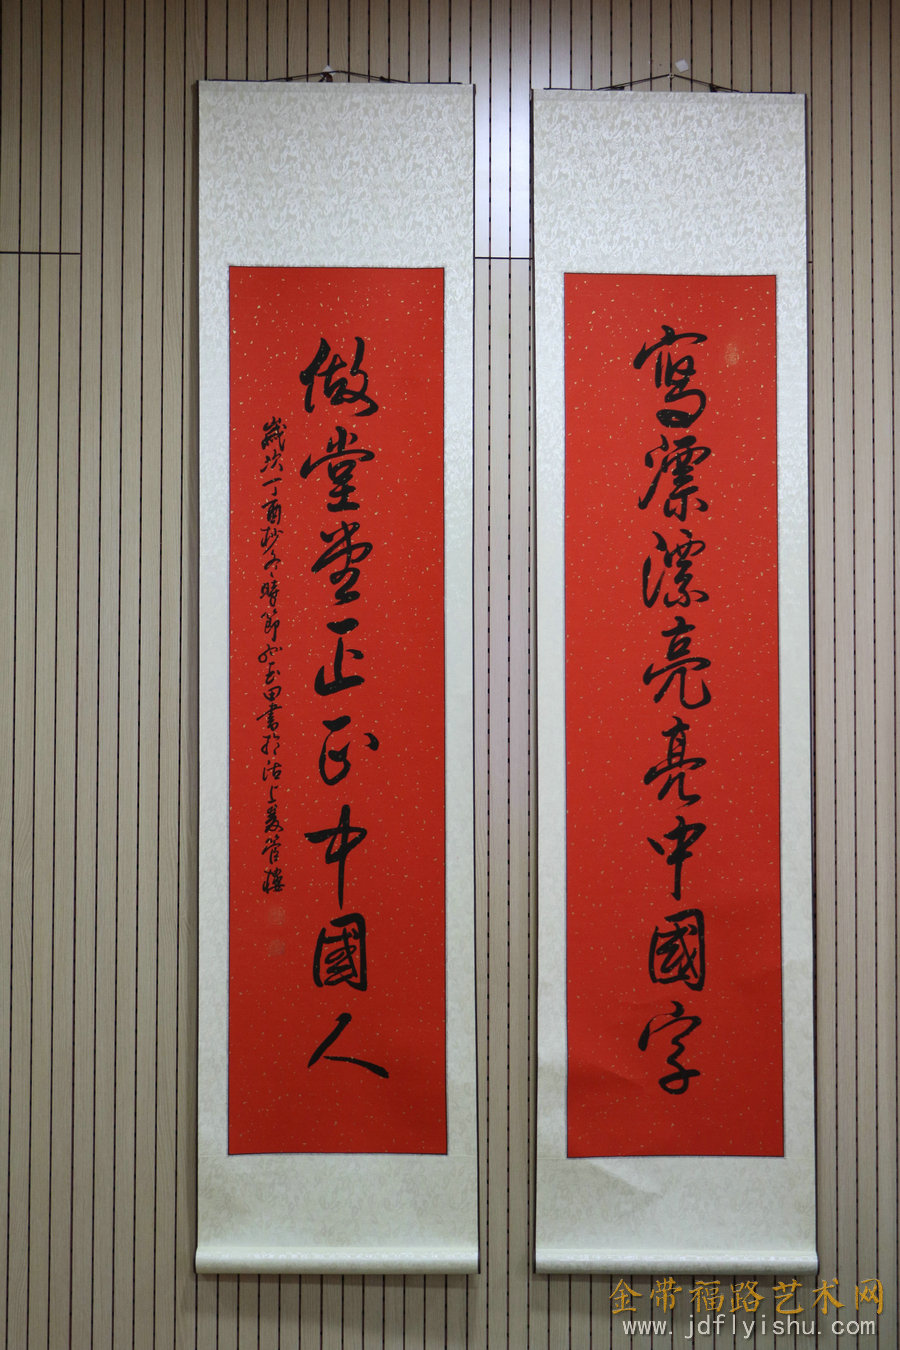 寫漂漂亮亮中國字
做堂堂正正中國人
歲次丁酉杪冬時節
田書於沽上爰管樓
金带福路艺术网
www.jdflyishu.com